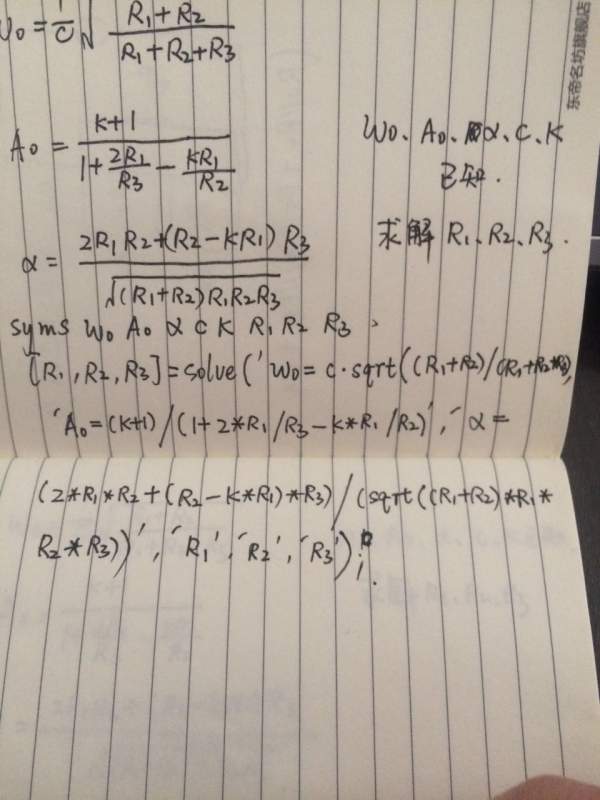 W₀ = 1/c √((R₁+R₂)/(R₁+R₂+R₃))
A₀ = (k+1)/(1+2R₁/R₃ − kR₁/R₂)
W₀、A₀、α、C、K
已知.
求解 R₁、R₂、R₃.
α = (2R₁R₂+(R₂−kR₁)R₃)/√((R₁+R₂)R₁R₂R₃)
syms W₀ A₀ α c K R₁ R₂ R₃
[R₁,R₂,R₃]=solve('W₀=c·sqrt((R₁+R₂)/(R₁+R₂
'A₀=(k+1)/(1+2*R₁/R₃-k*R₁/R₂)','α=
(2*R₁*R₂+(R₂-k*R₁)*R₃)/(sqrt((R₁+R₂)*R₁*
R₂*R₃))','R₁','R₂','R₃');
东帝名坊旗舰店